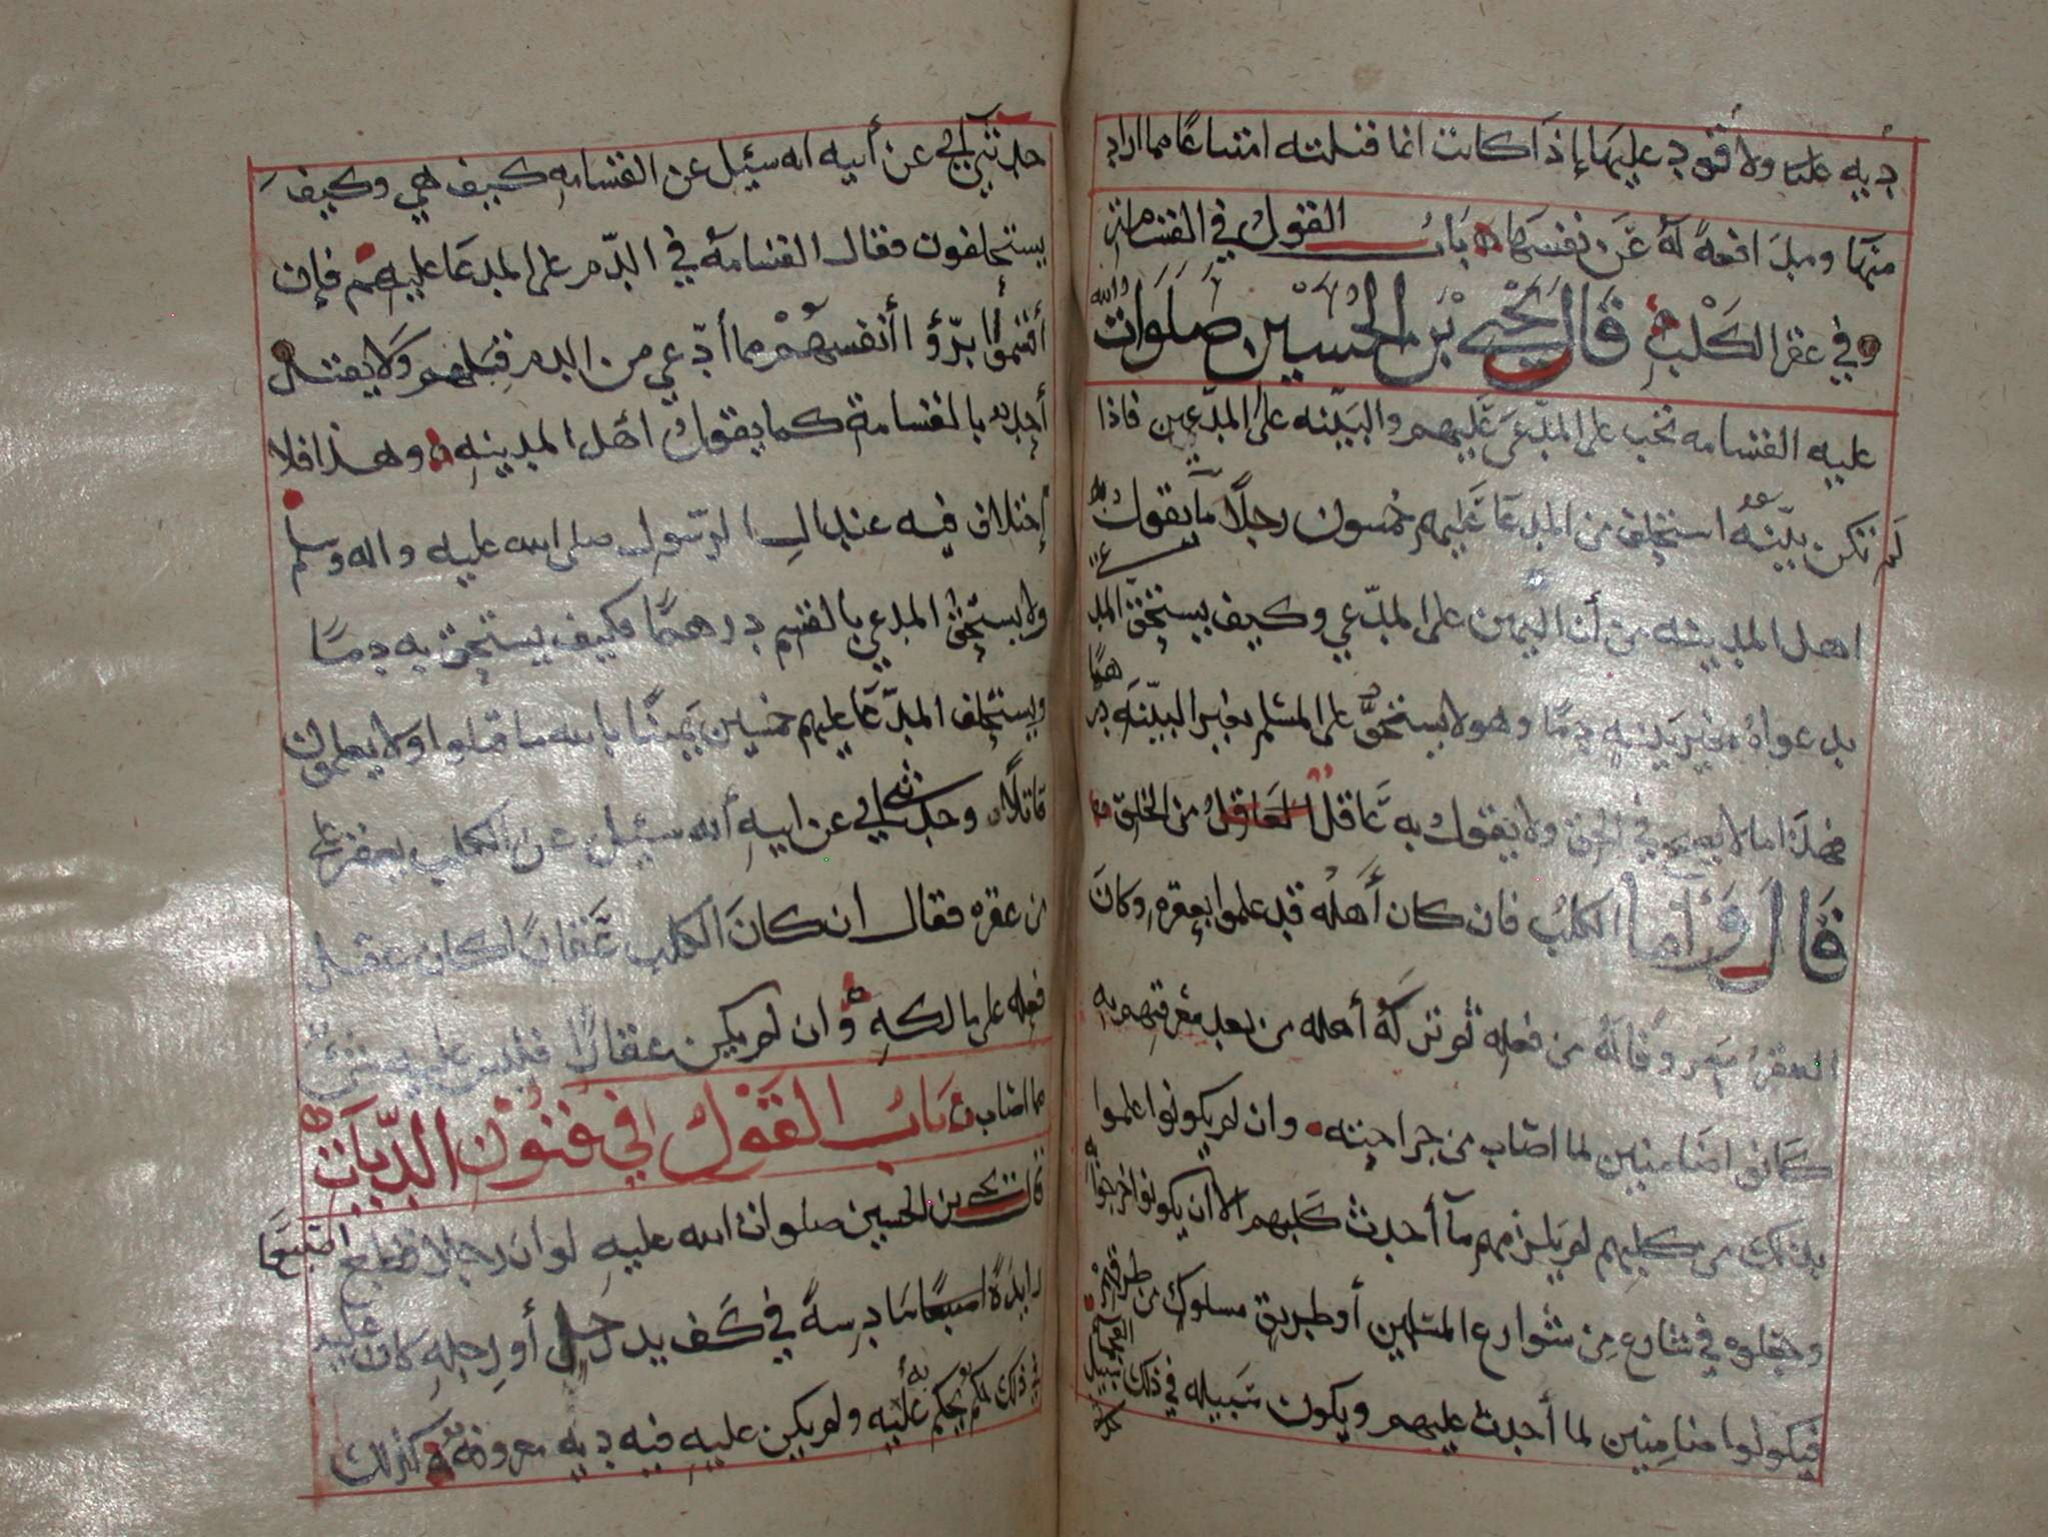 ديه عليها ولا قود عليها إذا كانت انما قتلته امتناعا مما اراد
منها ومدافعة له عن نفسها باب القول في القسامة
وفي عقر الكلب قال يحيى بن الحسين صلوات الله
عليه القسامه تجب على المدعى عليهم والبينه على المدعين فاذا
لم تكن بينه استحلف من المدعا عليهم خمسون رجلا ما يقول به
اهل المدينه من أن اليمين على المدعي وكيف يستحق المد
بدعواه بغير بينه دما وهو لا يستحق على المسلم بغير البينه درهما
فهذا ما لا يصح في الحق ولا يقول به عاقل من الخلق
قال وأما الكلب فان كان أهله قد علموا بعقره وكان
العقر معروفا له من فعله ثم تركه أهله من بعد معرفتهم به
كانوا ضامنين لما اصاب من جراحته وان لم يكونوا علموا
بذلك من كلبهم لم يلزمهم ما أحدث كلبهم الا ان يكونوا اخرجوه
وخلوه في شارع من شوارع المسلمين أو طريق مسلوك من طرقهم
فيكونوا ضامنين لما أحدث عليهم ويكون سبيله في ذلك سبيل
حدثني أبي عن أبيه انه سئل عن القسامه كيف هي وكيف
يستحلفون فقال القسامة في الدم على المدعا عليهم فإن
أقسموا برؤا أنفسهم مما أدعي من الدم قبلهم ولا يقتل
أحد بالقسامة كما يقول اهل المدينه وهذا فلا
إختلاف فيه عند ال الرسول صلى الله عليه واله وسلم
ولا يستحق المدعي بالقسم درهما فكيف يستحق به دما
ويستحلف المدعا عليهم خمسين يمينا بالله ما قتلوا ولا يعلمون
قاتلا وحدثني أبي عن ابيه أنه سئل عن الكلب يعقر على
من عقره فقال ان كان الكلب عقارا كان عقل
فعله على مالكه وان لم يكن عقارا فليس عليه شيء
مما اصاب باب القول في فنون الديات
قال يحيى بن الحسين صلوات الله عليه لو ان رجلا قطع اصبعا
زايدة سادسة في كف يد رجل أو رجله كان عليه
في ذلك حكم يحكم به عليه ولم يكن عليه فيه ديه معروفه وكذلك